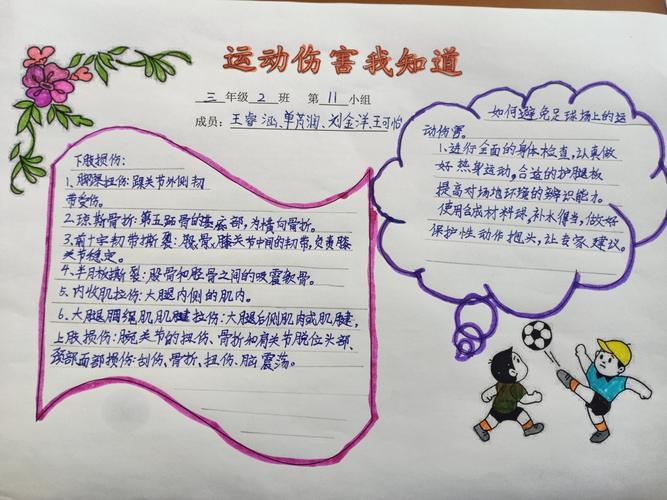 运动伤害我知道
三 年级 2 班 第 11 小组
成员：王睿涵、单芮润、刘金洋、王可怡
下肢损伤：
1、脚踝扭伤：踝关节外侧韧
带受伤。
2、琼斯骨折：第五跖骨的基底部，为横向骨折。
3、前十字韧带撕裂：股骨膝关节中间的韧带，负责膝
关节稳定。
4、半月板撕裂：股骨和胫骨之间的吸震软骨。
5、内收肌拉伤：大腿内侧的肌肉。
6、大腿腘绳肌肌腱拉伤：大腿后侧肌肉或肌腱，
上肢损伤：腕关节的扭伤、骨折和肩关节脱位头部、
颈部面部损伤：刮伤、骨折、扭伤、脑震荡。
如何避免足球场上的运
动伤害。
1、进行全面的身体检查，认真做
好热身运动，合适的护腿板
提高对场地环境的辨识能力。
使用合成材料球，补水得当，做好
保护性动作抱头，让专家建议。